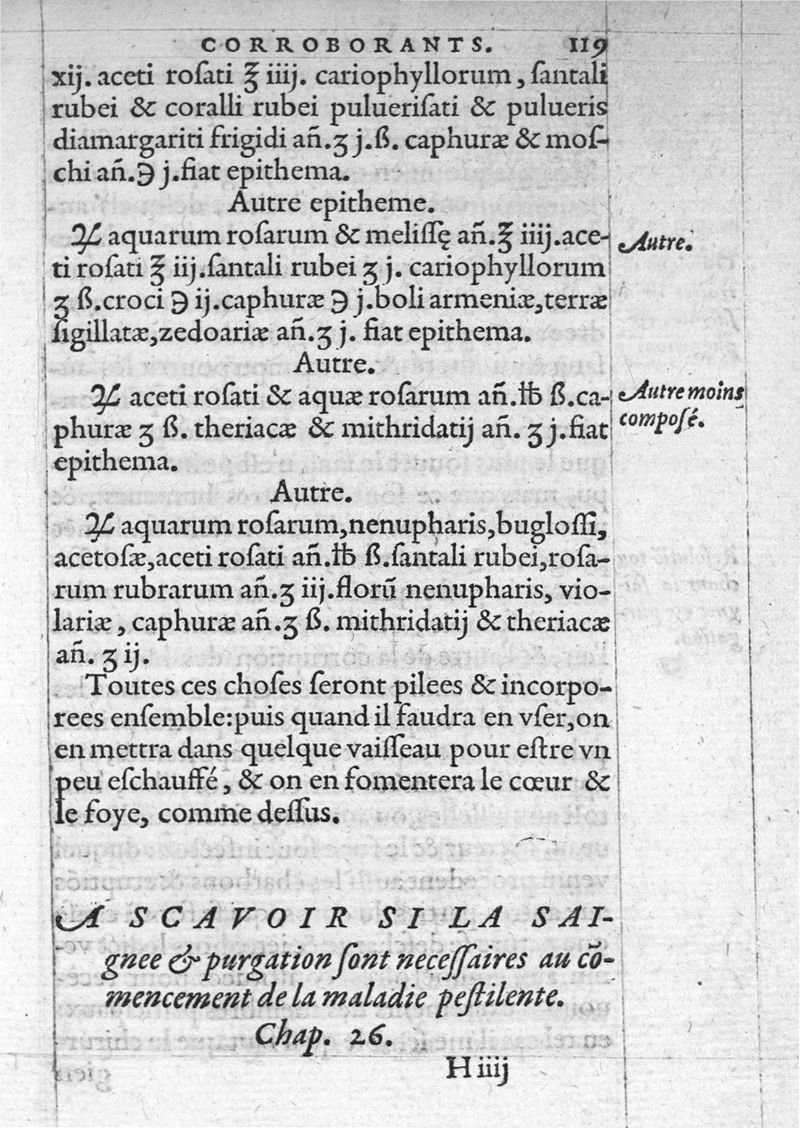 CORROBORANTS. 119
xij. aceti roſati ℥ iiij. cariophyllorum, ſantali
rubei & coralli rubei pulueriſati & pulueris
diamargariti frigidi añ.ʒ j.ß. caphuræ & moſ-
chi añ.℈ j.fiat epithema.
Autre epitheme.
℞ aquarum roſarum & meliſſę añ.℥ iiij.ace-
Autre.
ti roſati ℥ iij.ſantali rubei ʒ j. cariophyllorum
ʒ ß.croci ℈ ij.caphuræ ℈ j.boli armeniæ,terræ
ſigillatæ,zedoariæ añ.ʒ j. fiat epithema.
Autre.
℞ aceti roſati & aquæ roſarum añ.℔ ß.ca-
Autre moins
phuræ ʒ ß. theriacæ & mithridatij añ. ʒ j.fiat
compoſé.
epithema.
Autre.
℞ aquarum roſarum,nenupharis,bugloſſi,
acetoſæ,aceti roſati añ.℔ ß.ſantali rubei,roſa-
rum rubrarum añ.ʒ iij.florū nenupharis, vio-
lariæ, caphuræ añ.ʒ ß. mithridatij & theriacæ
añ. ʒ ij.
Toutes ces choſes ſeront pilees & incorpo-
rees enſemble:puis quand il faudra en vſer,on
en mettra dans quelque vaiſſeau pour eſtre vn
peu eſchauffé, & on en fomentera le cœur &
le foye, comme deſſus.
A SCAVOIR SI LA SAI-
gnee & purgation ſont neceſſaires au cō-
mencement de la maladie peſtilente.
Chap. 26.
H iiij